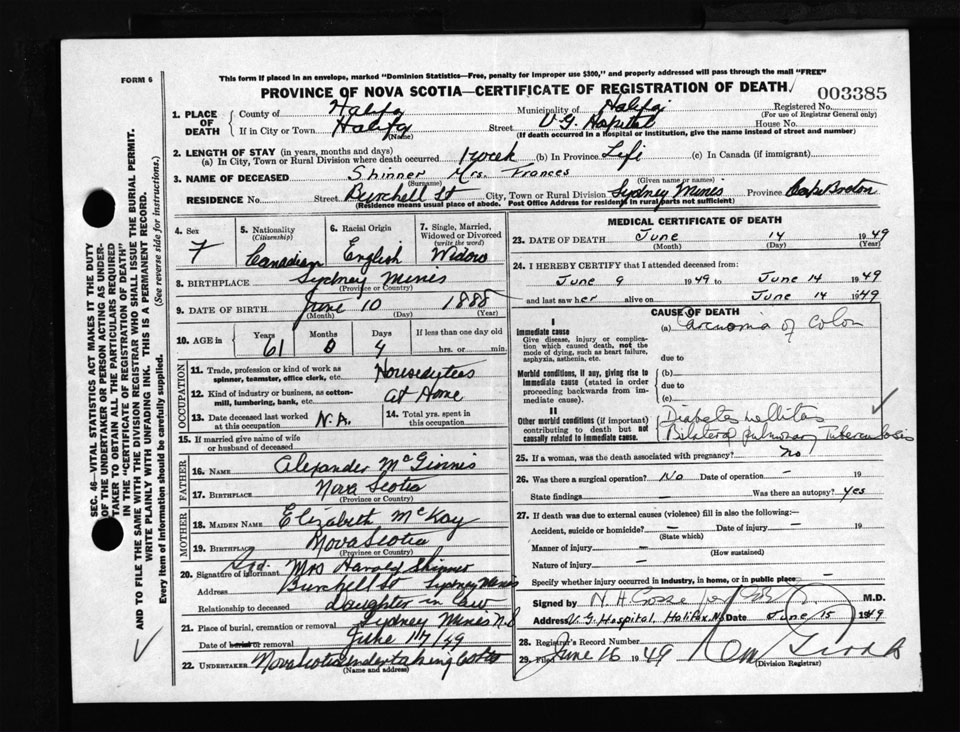 FORM 6
This form if placed in an envelope, marked "Dominion Statistics—Free, penalty for improper use $300," and properly addressed will pass through the mail "FREE"
PROVINCE OF NOVA SCOTIA—CERTIFICATE OF REGISTRATION OF DEATH
003385
1. PLACE OF DEATH
County of Halifax Municipality of Halifax Registered No.
(For use of Registrar General only)
If in City or Town Halifax Street V.G. Hospital House No.
(Name) (If death occurred in a hospital or institution, give the name instead of street and number)
2. LENGTH OF STAY (in years, months and days)
(a) In City, Town or Rural Division where death occurred 1 week (b) In Province Life (c) In Canada (if immigrant)
3. NAME OF DECEASED Shinner Mrs. Frances
(Surname) (Given name or names)
RESIDENCE No. Street Burchell St City, Town or Rural Division Sydney Mines Province Cape Breton
(Residence means usual place of abode. Post Office Address for residents in rural parts not sufficient)
4. Sex F
5. Nationality (Citizenship) Canadian
6. Racial Origin English
7. Single, Married, Widowed or Divorced (write the word) Widow
8. BIRTHPLACE Sydney Mines
(Province or Country)
9. DATE OF BIRTH June 10 1888
(Month) (Day) (Year)
10. AGE Years 61 Months 0 Days 4 If less than one day old
hrs. or min.
OCCUPATION
11. Trade, profession or kind of work as spinner, teamster, office clerk, etc.
12. Kind of industry or business, as cotton-mill, lumbering, bank, etc. at Home
13. Date deceased last worked at this occupation N.A.
14. Total yrs. spent in this occupation
15. If married give name of wife or husband of deceased
FATHER
16. NAME Alexander McGinnis
17. BIRTHPLACE Nova Scotia
(Province or Country)
MOTHER
18. MAIDEN NAME Elizabeth McKay
19. BIRTHPLACE Nova Scotia
(Province or Country)
20. Signature of informant Sgd. Mrs Harold Shinner
Address Burchell St Sydney Mines
Relationship to deceased daughter in law
21. Place of burial, cremation or removal Sydney Mines N.S
Date of burial or removal June 17/49
22. UNDERTAKER Nova Scotia Undertaking
(Name and address)
MEDICAL CERTIFICATE OF DEATH
23. DATE OF DEATH June 14 1949
(Month) (Day) (Year)
24. I HEREBY CERTIFY that I attended deceased from:
June 9 1949 to June 14 1949
and last saw her alive on June 14 1949
CAUSE OF DEATH
I
Immediate cause
Give disease, injury or complication which caused death, not the mode of dying, such as heart failure, asphyxia, asthenia, etc.
(a) Carcinoma of Colon
due to
Morbid conditions, if any, giving rise to immediate cause (stated in order proceeding backwards from immediate cause).
(b)
due to
(c)
II
Other morbid conditions (if important) contributing to death but not causally related to immediate cause.
Diabetes Mellitus
Bilateral pulmonary Tuberculosis
25. If a woman, was the death associated with pregnancy? No
26. Was there a surgical operation? No Date of operation — 19
State findings — Was there an autopsy? Yes
27. If death was due to external causes (violence) fill in also the following:—
Accident, suicide or homicide? — Date of injury — 19
(State which)
Manner of injury —
(How sustained)
Nature of injury —
Specify whether injury occurred in industry, in home, or in public place —
Signed by M.D.
Address V.G. Hospital, Halifax N.S. Date June 15 1949
28. Registrar's Record Number
29. Filed June 16 1949
(Division Registrar)
SEC. 46—VITAL STATISTICS ACT MAKES IT THE DUTY
OF THE UNDERTAKER OR PERSON ACTING AS UNDER-
TAKER TO OBTAIN ALL THE PARTICULARS REQUIRED
IN THE "CERTIFICATE OF REGISTRATION OF DEATH"
AND TO FILE THE SAME WITH THE DIVISION REGISTRAR WHO SHALL ISSUE THE BURIAL PERMIT.
WRITE PLAINLY WITH UNFADING INK. THIS IS A PERMANENT RECORD.
Every item of information should be carefully supplied. (See reverse side for instructions.)